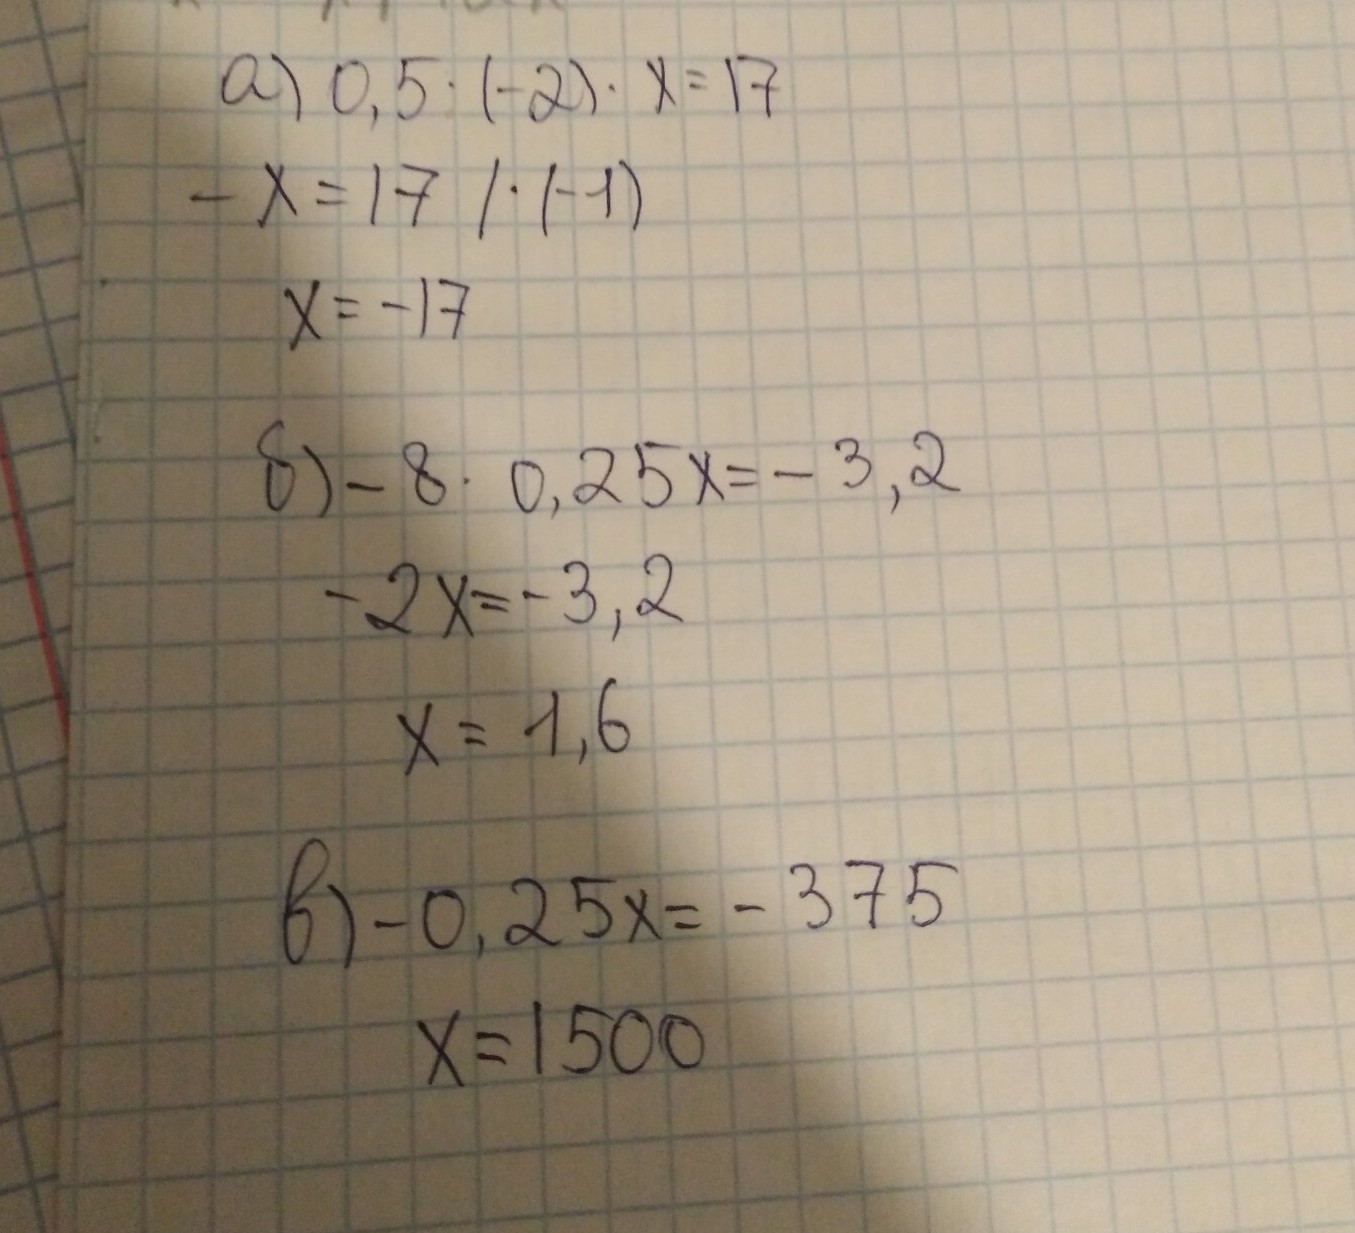 а) 0,5·(-2)·x=17
-x=17 /·(-1)
x=-17
б) -8·0,25x=-3,2
-2x=-3,2
x=1,6
в) -0,25x=-375
x=1500